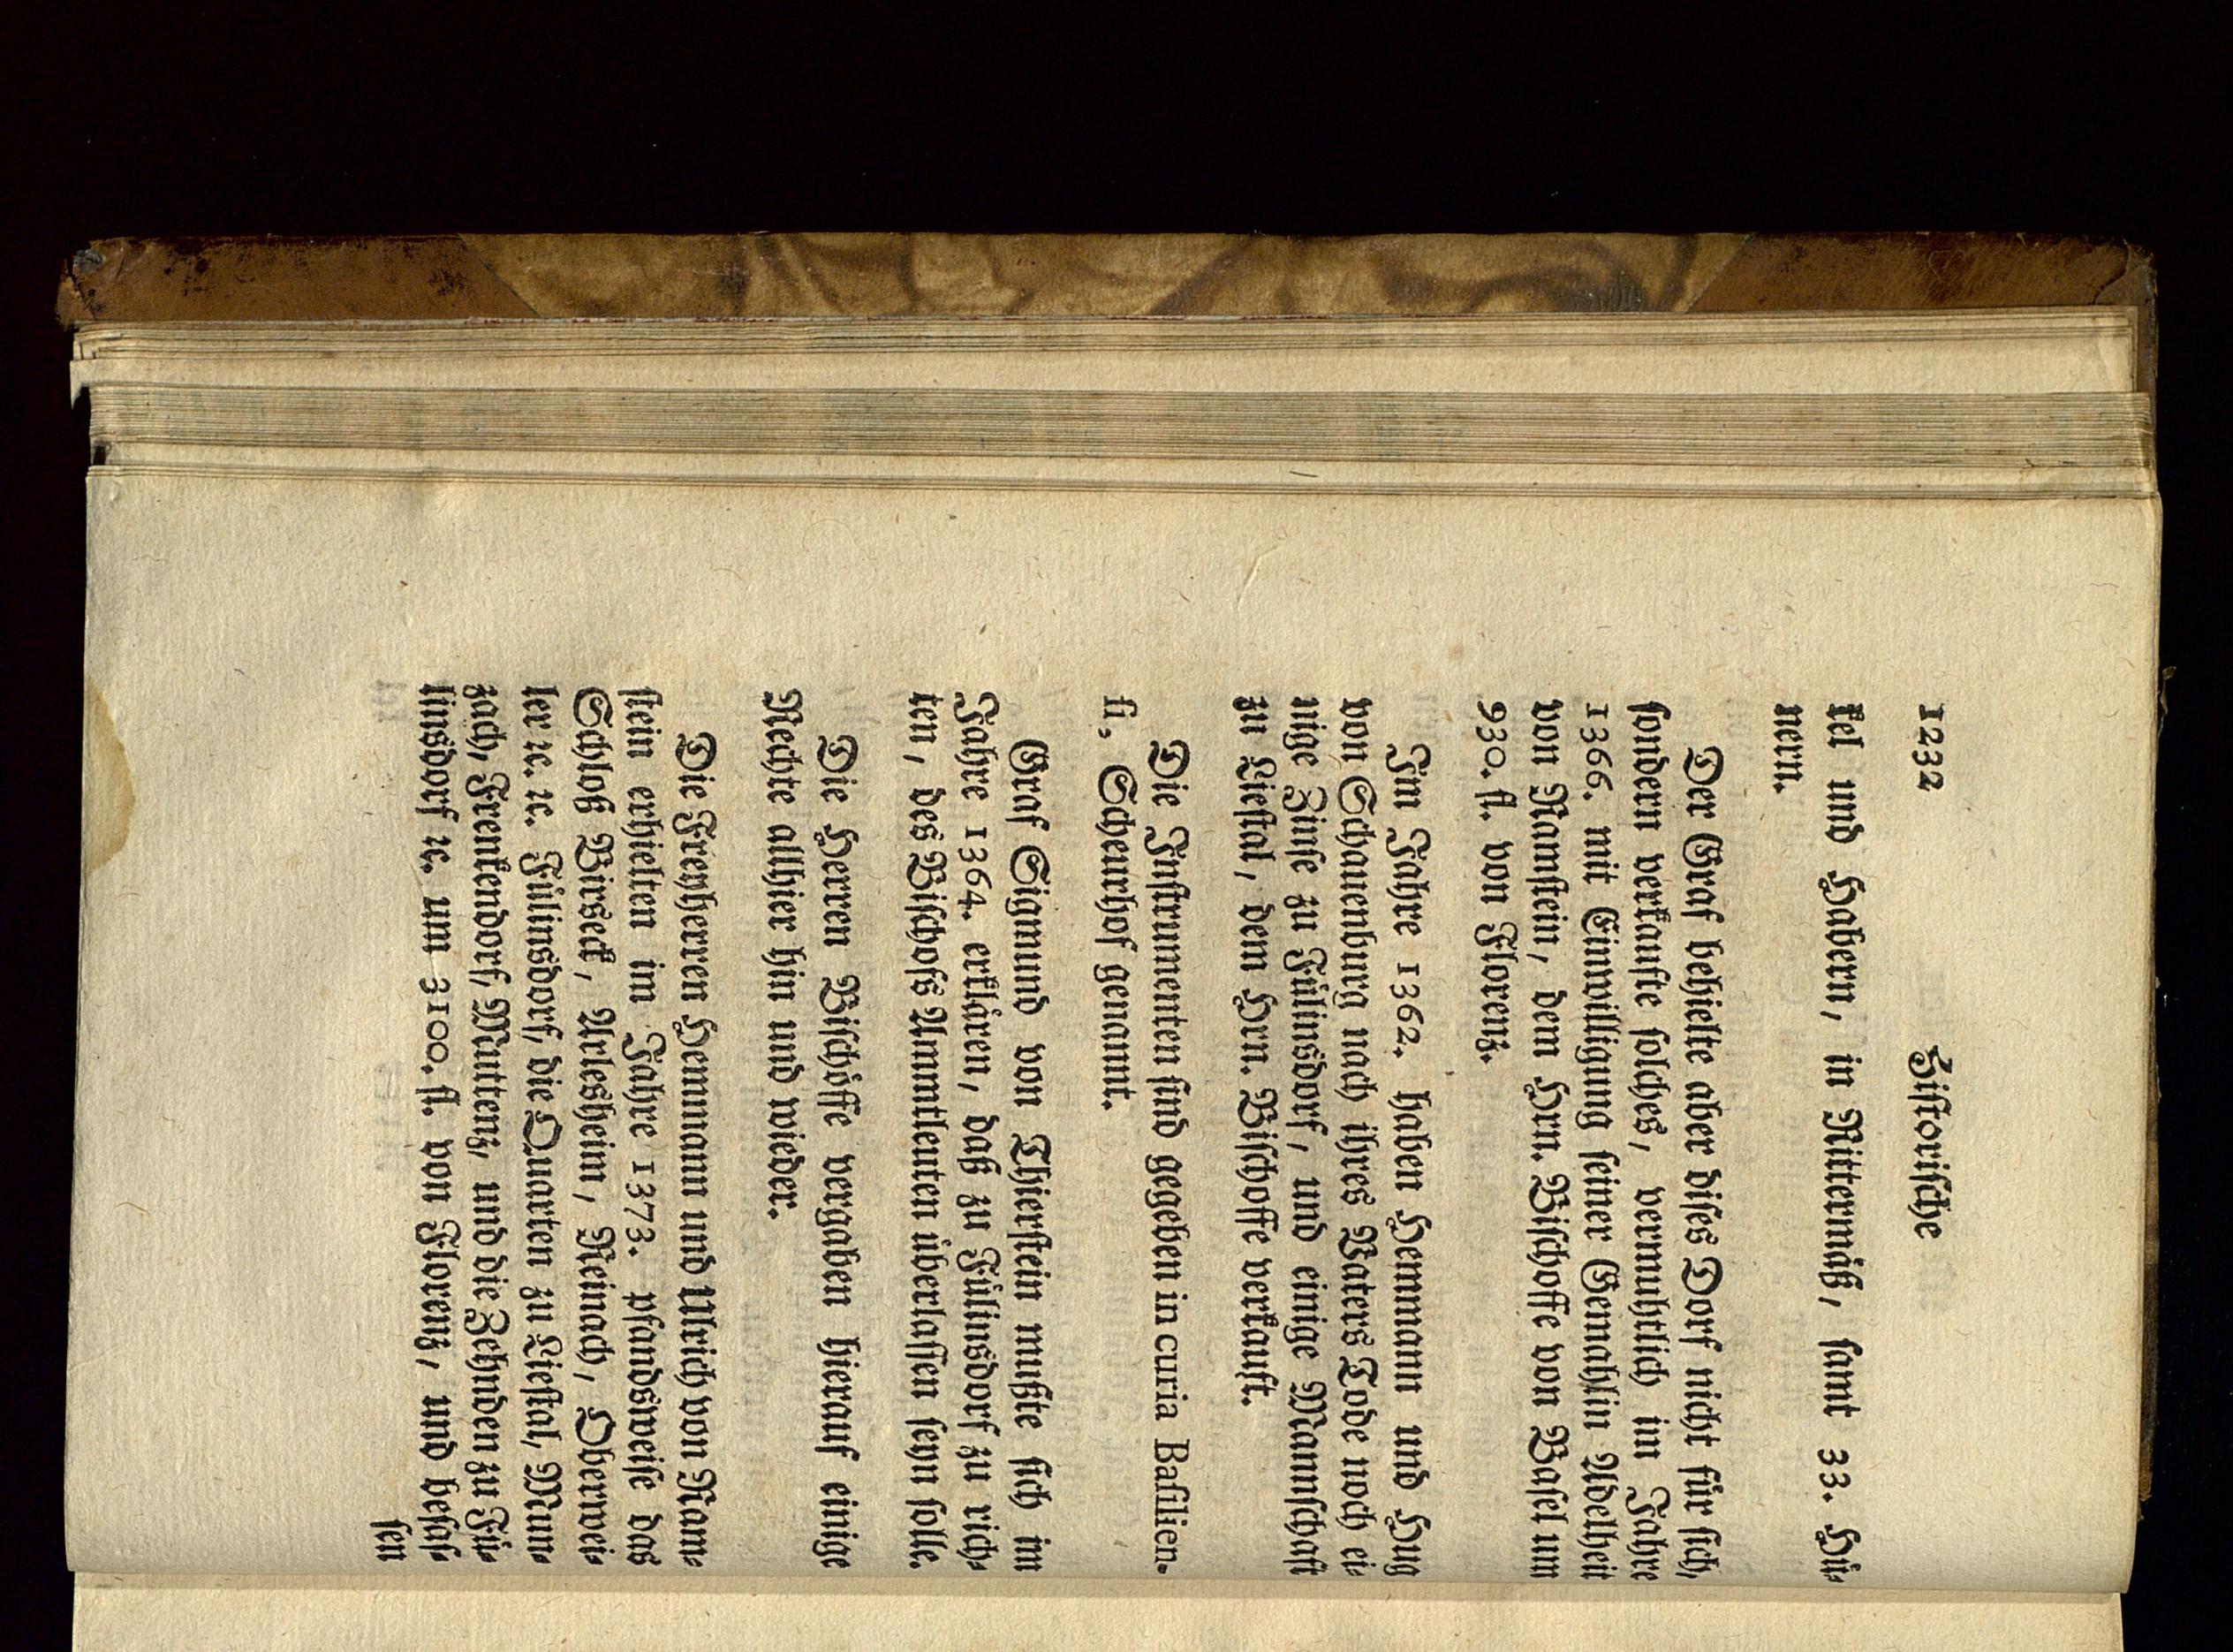 1232 Historische
kel und Habern, in Rittermäß, samt 33. Hü-
nern.
Der Graf behielte aber dises Dorf nicht für sich,
sondern verkaufte solches, vermuhtlich im Jahre
1366. mit Einwilligung seiner Gemahlin Adelheit
von Ramstein, dem Hrn. Bischoffe von Basel um
930. fl. von Florenz.
Jm Jahre 1362. haben Hemmann und Hug
von Schauenburg nach ihres Vaters Tode noch ei-
nige Zinse zu Fülinsdorf, und einige Mannschaft
zu Liestal, dem Hrn. Bischoffe verkauft.
Die Jnstrumenten sind gegeben in curia Basilien-
si, Scheurhof genannt.
Graf Sigmund von Thierstein mußte sich im
Jahre 1364. erklären, daß zu Fülinsdorf zu rich-
ten, des Bischofs Ammtleuten überlassen seyn solle.
Die Herren Bischöffe vergaben hierauf einige
Rechte allhier hin und wieder.
Die Freyherren Hemmann und Ulrich von Ram-
stein erhielten im Jahre 1373. pfandsweise das
Schloß Birseck, Arlesheim, Reinach, Oberwei-
ler ꝛc. ꝛc. Fülinsdorf, die Quarten zu Liestal, Mun-
zach, Frenkendorf, Muttenz, und die Zehnden zu Fü-
linsdorf ꝛc. um 3100. fl. von Florenz, und besas-
sen